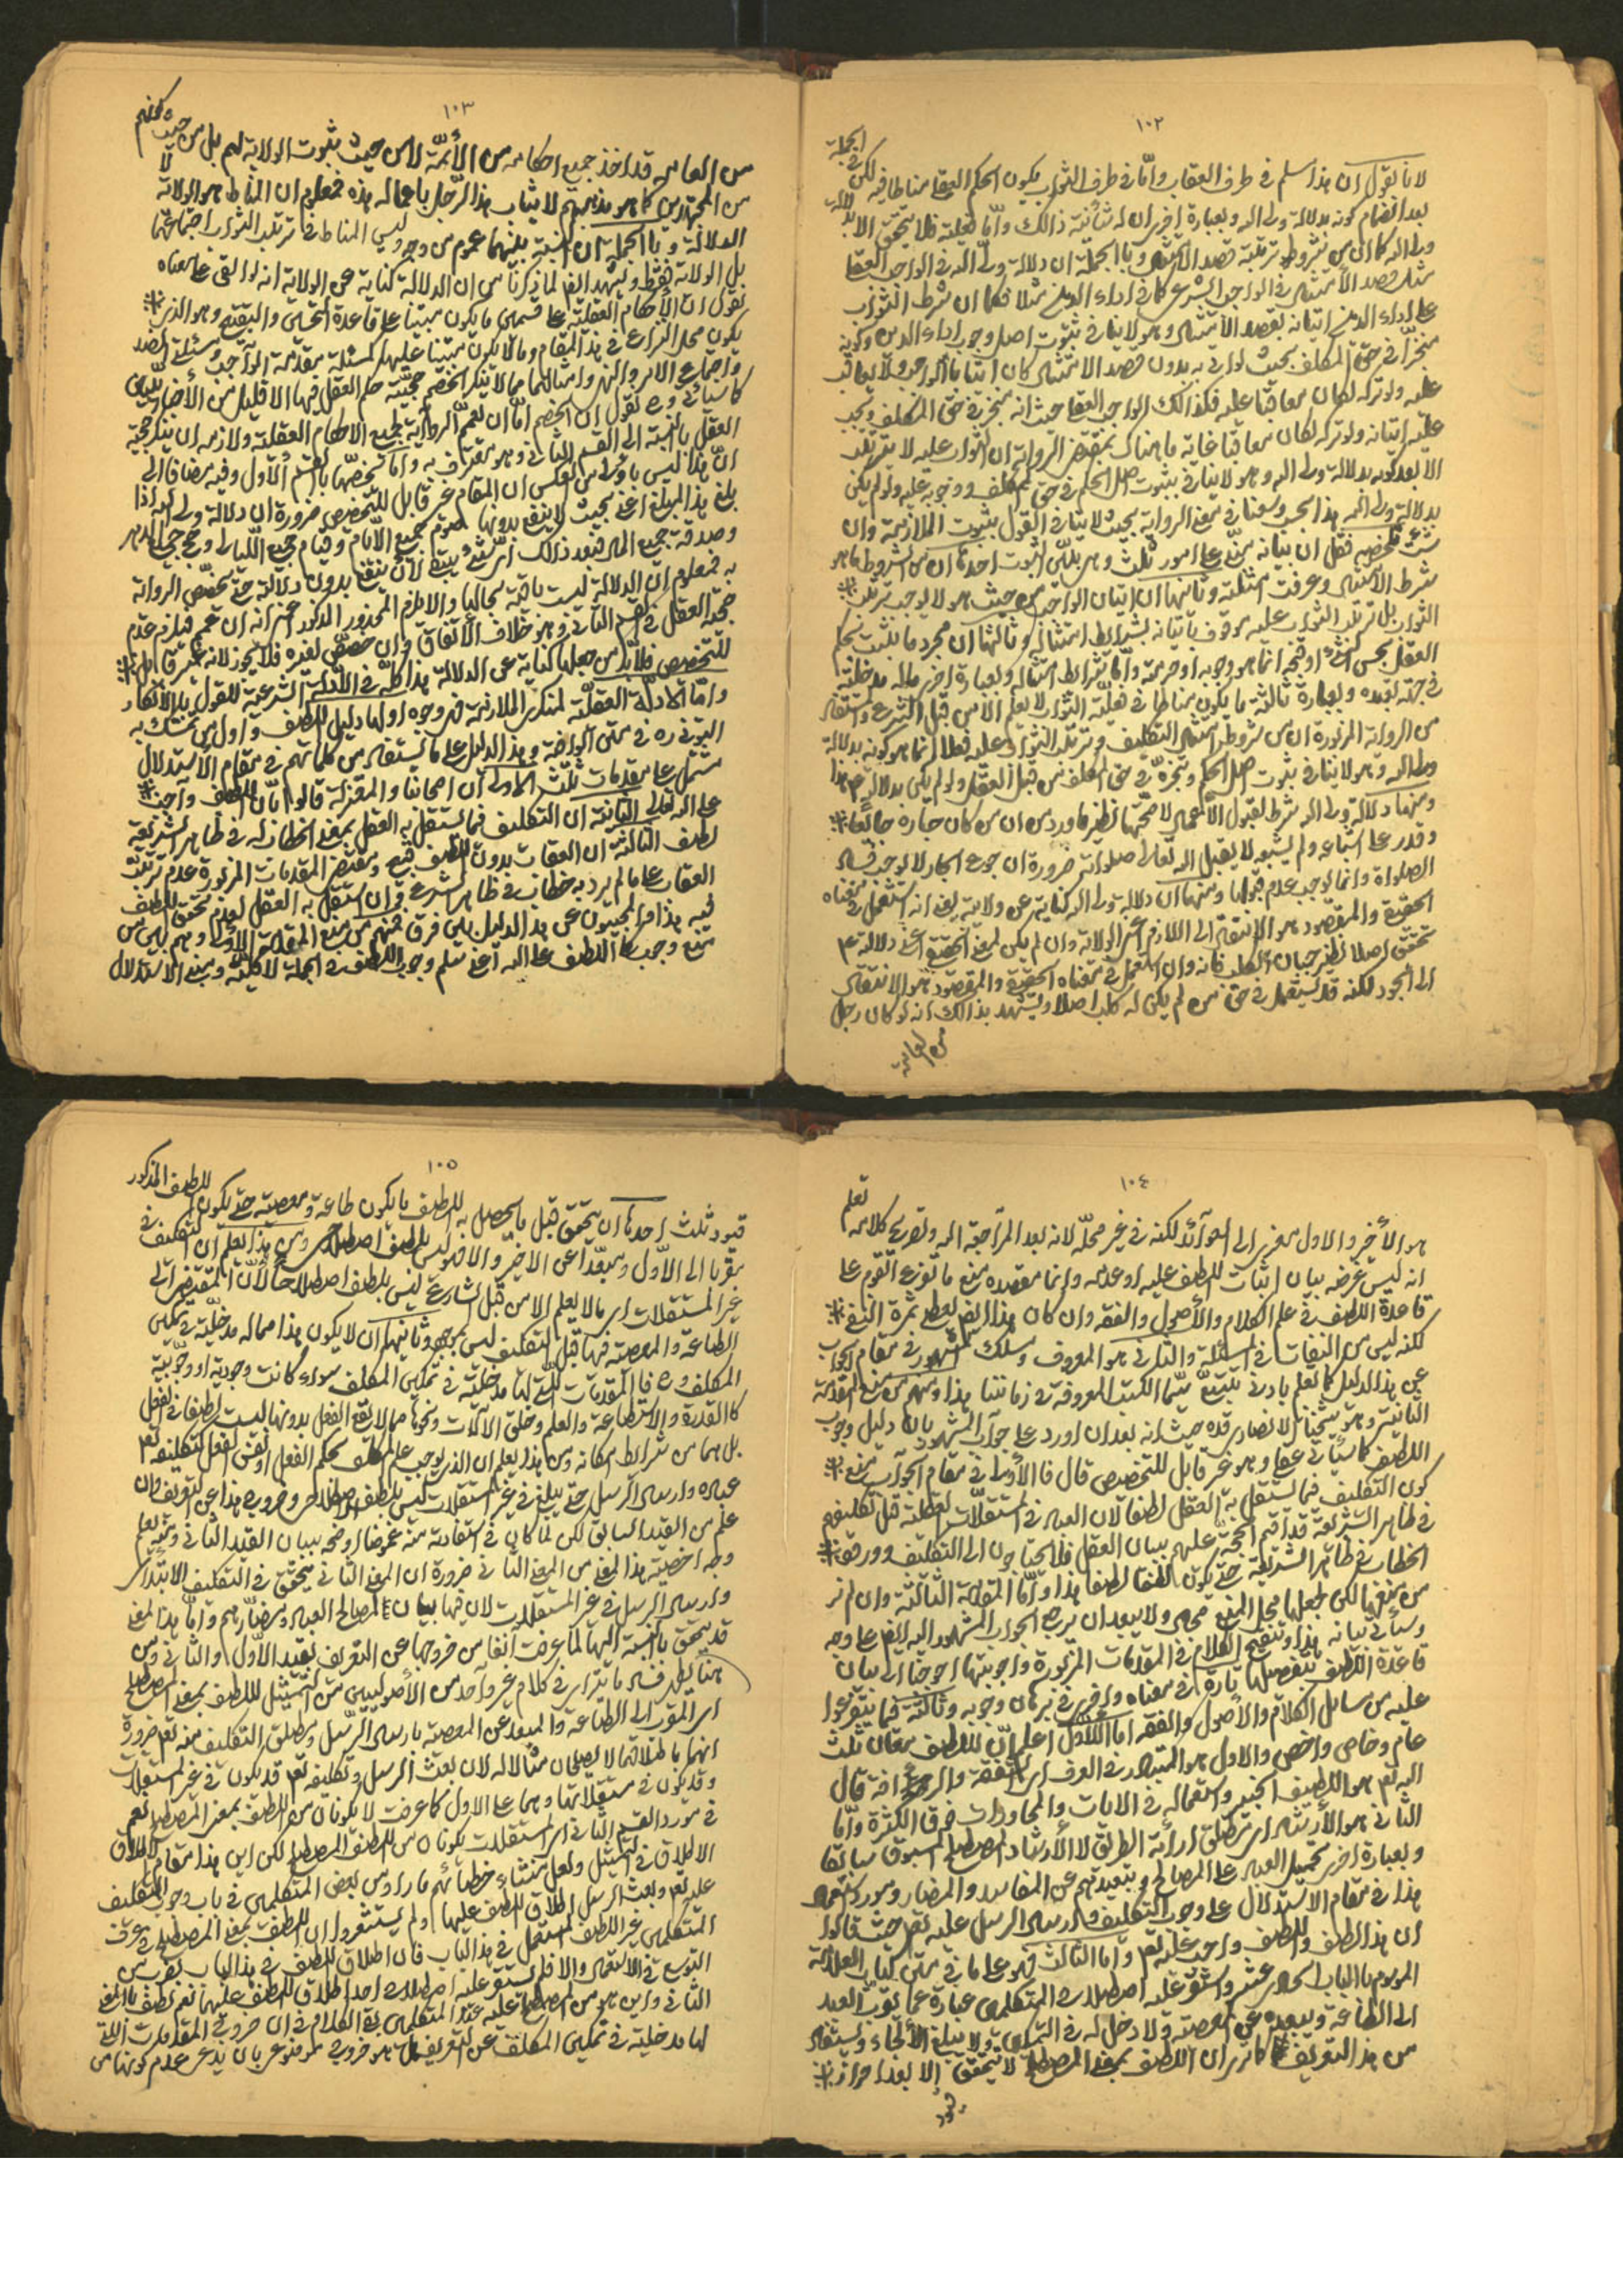 ١٠٢
لانا نقول ان هذا مسلم فى طرف العقاب وامّا فى طرف الثواب يكون الحكم العقلى مناطا فيه لكن فى الجملة
بعد انضمام كونه بدلالة ولى الله وبعبارة اخرى ان له شأنية ذالك وامّا فعليته فلا يتحقق الا بدلالة
ولى الله كما ان من شروط ترتبه قصد الامتثال وبالجملة ان دلالة ولى الله فى الواجب العقلى
مثل قصد الامتثال فى الواجب الشرعى كما فى اداء الدين مثلا فكما ان شرط الثواب
على اداء الدين اتيانه بقصد الامتثال وهو لا ينافى ثبوت اصل وجوب اداء الدين وكونه
منجزّا فى حق المكلف بحيث لو اتى به بدون قصد الامتثال كان اتيا بالواجب ولا يعاقب
عليه ولو تركه لكان معاقبا عليه فكذالك الواجب العقلى حيث انه منجز فى حق المكلف ويجب
عليه اتيانه ولو تركه لكان معاقبا غاية ما هناك بمقتضى الرواية ان الثواب عليه لا يترتب
الا بعد كونه بدلالة ولى الله وهو لا ينافى ثبوت اصل الحكم فى حق المكلف ووجوبه عليه ولو لم يكن
بدلالة ولى الله هذا
شرط الامتثال وعرفت امثلته وثانيها ان اتيان الواجب من حيث هو لا يوجب ترتب
الثواب بل ترتب الثواب عليه موقوف باتيانه بشرائط امتثاله وثالثها ان مجرد ما يثبت بحكم
العقل بحسن الشئ او قبحه انما هو وجوبه او حرمته وامّا شرائط امتثاله وبعبارة اخرى ماله مدخلية
فى جهة تعبده وبعبارة ثالثة ما يكون مناطا فى فعلية الثواب لا يعلم الا من قبل الشرع والمستفاد
من الرواية المزبورة ان من شروط امتثال التكليف وترتب الثواب عليه فعلا انما هو كونه بدلالة
ولى الله وهو لا ينافى ثبوت اصل الحكم وتنجزه فى حق المكلف من قبل العقل ولو لم يكن بدلالته هذا
ومنها دلالة ولى الله شرط لقبول الاعمال لا صحتها نظير ما ورد من ان من كان جاره جائعا
وقدر على اشباعه ولم يشبعه لا يقبل الله تعالى صلواته ضرورة ان جوع الجار لا يوجب فساد
الصلوة وانما يوجب عدم قبولها ومنها ان دلالة ولى الله كناية عن ولايته يعنى انه استعمل فى معناه
الحقيقى والمقصود هو الانتقال الى اللازم اعنى الولاية وان لم يكن المعنى الحقيقى اعنى دلالته
تحقق اصلا نظير جبان الكلب فانه وان استعمل فى معناه الحقيقى والمقصود هو الانتقال
الى الجود لكنه قد يستعمل فى حق من لم يكن له كلب اصلا ويشهد بذالك انه لو كان رجل
من العامة
١٠٣
من العامه قد اخذ جميع احكامه من الأئمّة لا من حيث ثبوت الولاية لهم بل من حيث كونهم
من المجتهدين كما هو مذهبهم لا يثاب هذا الرّجل باعماله هذه فمعلوم ان المناط هو الولاية لا
الدلالة وبالجملة ان النسبة بينهما عموم من وجه وليس المناط فى ترتب الثواب اجتماعهما
بل الولاية فقط ويشهد ايضا لما ذكرنا من ان الدلالة كناية عن الولاية انه لو ابقى على معناه
نقول ان الأحكام العقلية على قسمين ما يكون مبتنيا على قاعدة التحسين والتقبيح وهو الذى
يكون محل النزاع فى هذا المقام وما لا يكون مبتنيا عليهما كمسئلة مقدمة الواجب ومسئلة الضد
واجتماع الامر والنهى وامثالهما مما لا ينكر الخصم حجيّة حكم العقل فيها الا قليل من الأخباريّين
كما سيأتى و ح نقول ان الخصم امّا ان يعمّم الرواية بجميع الاحكام العقلية ولازمه ان ينكر حجيّة
العقل بالنسبة الى القسم الثانى وهو معترف به وامّا يخصّها بالقسم الأول وفيه مضافا الى
انّ هذا ليس باولى من العكس ان المقام غير قابل للتخصيص ضرورة ان دلالة ولى الله اذا
بلغ هذا المبلغ اعنى بحيث لا ينفع بدونها صوم جميع الأيّام وقيام جميع اللّيالى وحج جميع الدهر
وصدقة جميع المال فبعد ذالك اىّ شئ يبقى لأن ينفع بدون دلالة حتى يخصّص الرواية
به فمعلوم ان الدلالة ليست باقية بحالها والا يلزم المحذور المذكور اعنى انه ان عمم فيلزم عدم
حجيّة العقل فى القسم الثانى وهو خلاف الاتفاق وان خصّص لغيره فلا يجوز لانه غير قابل
للتخصيص فلا بدّ من جعلها كناية عن الدلالة هذا كلّه فى الأدلّة الشرعية للقول بالانكار
وامّا الادلّة العقليّة لمنكرى الملازمة فمن وجوه اولها دليل اللطف واول من تمسّك به
التونى ره فى متن الوافية وهذا الدليل على ما يستفاد من كلماتهم فى مقام الأستدلال
مشتمل على مقدمات ثلث الاولى ان اصحابنا والمعتزلة قالوا بانّ اللطف واجب
على الله تعالى الثانية ان التكليف فيما يستقل به العقل بمعنى الخطاب به فى ظاهر الشريعة
لطف الثالثة ان العقاب بدون اللطف قبيح ومقتضى المقدمات المزبورة عدم ترتّب
العقاب على ما لم يرد به خطاب فى ظاهر الشرع وان استقل به العقل لعدم تحقق اللطف
فيه هذا والمجيبون عن هذا الدليل بين فرق فمنهم من منع المقدمة الأولى وهم بين من
منع وجوب اللطف على الله اعنى سلم وجوب اللطف فى الجملة لا كليّة ومنع الاستدلال
١٠٤
هو الأخير والاول معزى الى العوائد لكنه فى غير محلّه لانه بعد المراجعة اليه وتصريح كلامه تعلم
انه ليس غرضه بيان اثبات اللطف عليه او عدمه وانما مقصده منع ما توزع القوم على
قاعدة اللطف فى علم الكلام والأصول والفقه وان كان هذا ايضا يعطى ثمرة النفع
لكنه ليس من النفات فى المسئلة والثانى هو المعروف ومسلك المشهور فى مقام الجواب
عن هذا الدليل كما تعلم بادنى تتبّع سيّما الكتب المعروفة فى زماننا هذا ومنهم من منع المقدمة
الثانية وهو شيخنا الانصارى قده حيث انه بعد ان اورد على جواب المشهور بان دليل وجوب
اللطف كما سيأتى عقلى وهو غير قابل للتخصيص قال فالأولى فى مقام الجواب منع
كون التكليف فيما يستقل به العقل لطفا لان العباد فى المستقلات العقلية قبل تكليفهم
فى ظاهر الشريعة قد اقيم الحجة عليهم ببيان العقل فلا يحتاجون الى التكليف وورود
الخطاب فى ظاهر الشريعة حتى يكون لطفا هذا وامّا المقدمة الثالثة وان لم نر
من منعها لكن لجعلها محل المنع مجال ولا يبعد ان يرجع الجواب المشهور اليه ايضا على وجه
وسيأتى بيانه هذا وتنقيح الكلام فى المقدمات المزبورة واجوبتها احوجنا الى بيان
قاعدة اللطف بتفصيلها تارة فى معناه واخرى فى برهان وجوبه وثالثة فيما يتفرعوا
عليه من مسائل الكلام والأصول والفقه اما الأول اعلم انّ للطف معان ثلث
عام وخاص واخص والاول هو المتبادر فى العرف اى الشفقة والرأفة قال
الله تعم هو اللطيف الخبير واستعماله فى الايات والمحاورات فوق الكثرة وامّا
الثانى هو الأرشاد اى مطلق ارائة الطريق لا الأرشاد المصطلح المسبوق سابقا
وبعبارة اخرى تحميل العباد على المصالح وتبعيدهم عن المفاسد والمضار ومورد استعماله
هذا فى مقام الاستدلال على وجوب التكليف وارسال الرسل عليه تعم حيث قالوا
ان هذا لطف واللطف واجب عليه تعم واما الثالث فهو على ما فى متن كتاب العلامة
الموسوم بالباب الحادى عشر واستقر عليه اصطلاح المتكلمين عبارة عما يقرب العبد
الى الطاعة ويبعده عن المعصية ولا دخل له فى التمكين ولا يبلغ الألجاء ويستفاد
من هذا التعريف كما ترى ان اللطف بمعنى المصطلح لا يتحقق إلا بعد احراز
قيود
١٠٥
قيود ثلث احدها ان يتحقق قبل ما يحصل به اللطف ما يكون طاعة ومعصية حتى يكون اللطف المذكور
مقربا الى الأوّل ومبعّدا عن الاخير والا فليس بلطف اصطلاحى ومن هذا يعلم ان التكليف فى
غير المستقلات اى ما لا يعلم الا من قبل الشارع ليس بلطف اصطلاحا لأنّ
الطاعة والمعصية فيها قبل التكليف ليس بموجود وثانيهما ان لا يكون هذا مما له مدخلية فى تمكين
المكلف و ح فالمقدمات اللتى لها مدخلية فى تمكين المكلف سواء كانت وجودية او وجوبية
كالقدرة والاستطاعة والعلم وخلق الآلات ونحوها مما لا يقع الفعل بدونها ليست لطفا فى الفعل
بل هما من شرائط امكانه ومن هذا يعلم ان الذى يوجب علم المكلف بحكم الفعل او نفس الفعل كتكليفه تعم
عباده وارسال الرسل حتى يبلغ فى غير المستقلات ليس بلطف اصطلاحى وخروج هذا عن التعريف وان
علم من القيد السابق لكن لما كان فى استفادته منه غموضا اوضحه ببيان القيد الثانى ومنه تعلم
وجه اخصية هذا المعنى من المعنى الثانى ضرورة ان المعنى الثانى يتحقق فى التكليف الابتدائى
وارسال الرسل فى غير المستقلات لان فيها بيان المصالح العباد ومضارّهم وامّا هذا المعنى
قد يتحقق بالنسبة اليها لما عرفت آنفا من خروجها عن التعريف بقيد الأول والثانى ومن
هنا يظهر فساد ما يتراى فى كلام غير واحد من الأصوليين من التمثيل للطف بمعنى المصطلح
اى المقرب الى الطاعة والمبعد عن المعصية بارسال الرسل ومطلق التكليف منه تعم ضرورة
انهما باطلاقهما لا يصلحان مثالا له لان بعث الرسل وتكليفه تعم قد يكون فى غير المستقلات
وقد يكون فى مستقلاتها وهما على الاول كما عرفت لا يكونان من اللطف بمعنى المصطلح نعم
فى مورد القسم الثانى اى المستقلات يكونان من اللطف المصطلح لكن اين هذا مقام الاطلاق
الاطلاق فى التمثيل ولعل منشاء خطائهم ما راوا من بعض المتكلمين فى باب وجوب التكليف
عليه تعم وبعث الرسل اطلاق اللطف عليها ولم يستشعروا ان اللطف بمعنى المصطلح فى عرف
المتكلمين غير اللطف المستعمل فى هذا الباب فان اطلاق اللطف فى هذا الباب تقرب من
التوسع فى الاستعمال والا فلم يستقر عليه اصطلاح احد اطلاق اللطف عليهما نعم لطف بالمعنى
الثانى واين هو من المصطلح عليه عند المتكلمين بقى الكلام فى ان خروج المقدمات اللتى
لها مدخلية فى تمكين المكلف عن التعريف هل هو خروج موضوعى بان يدعى عدم كونها من